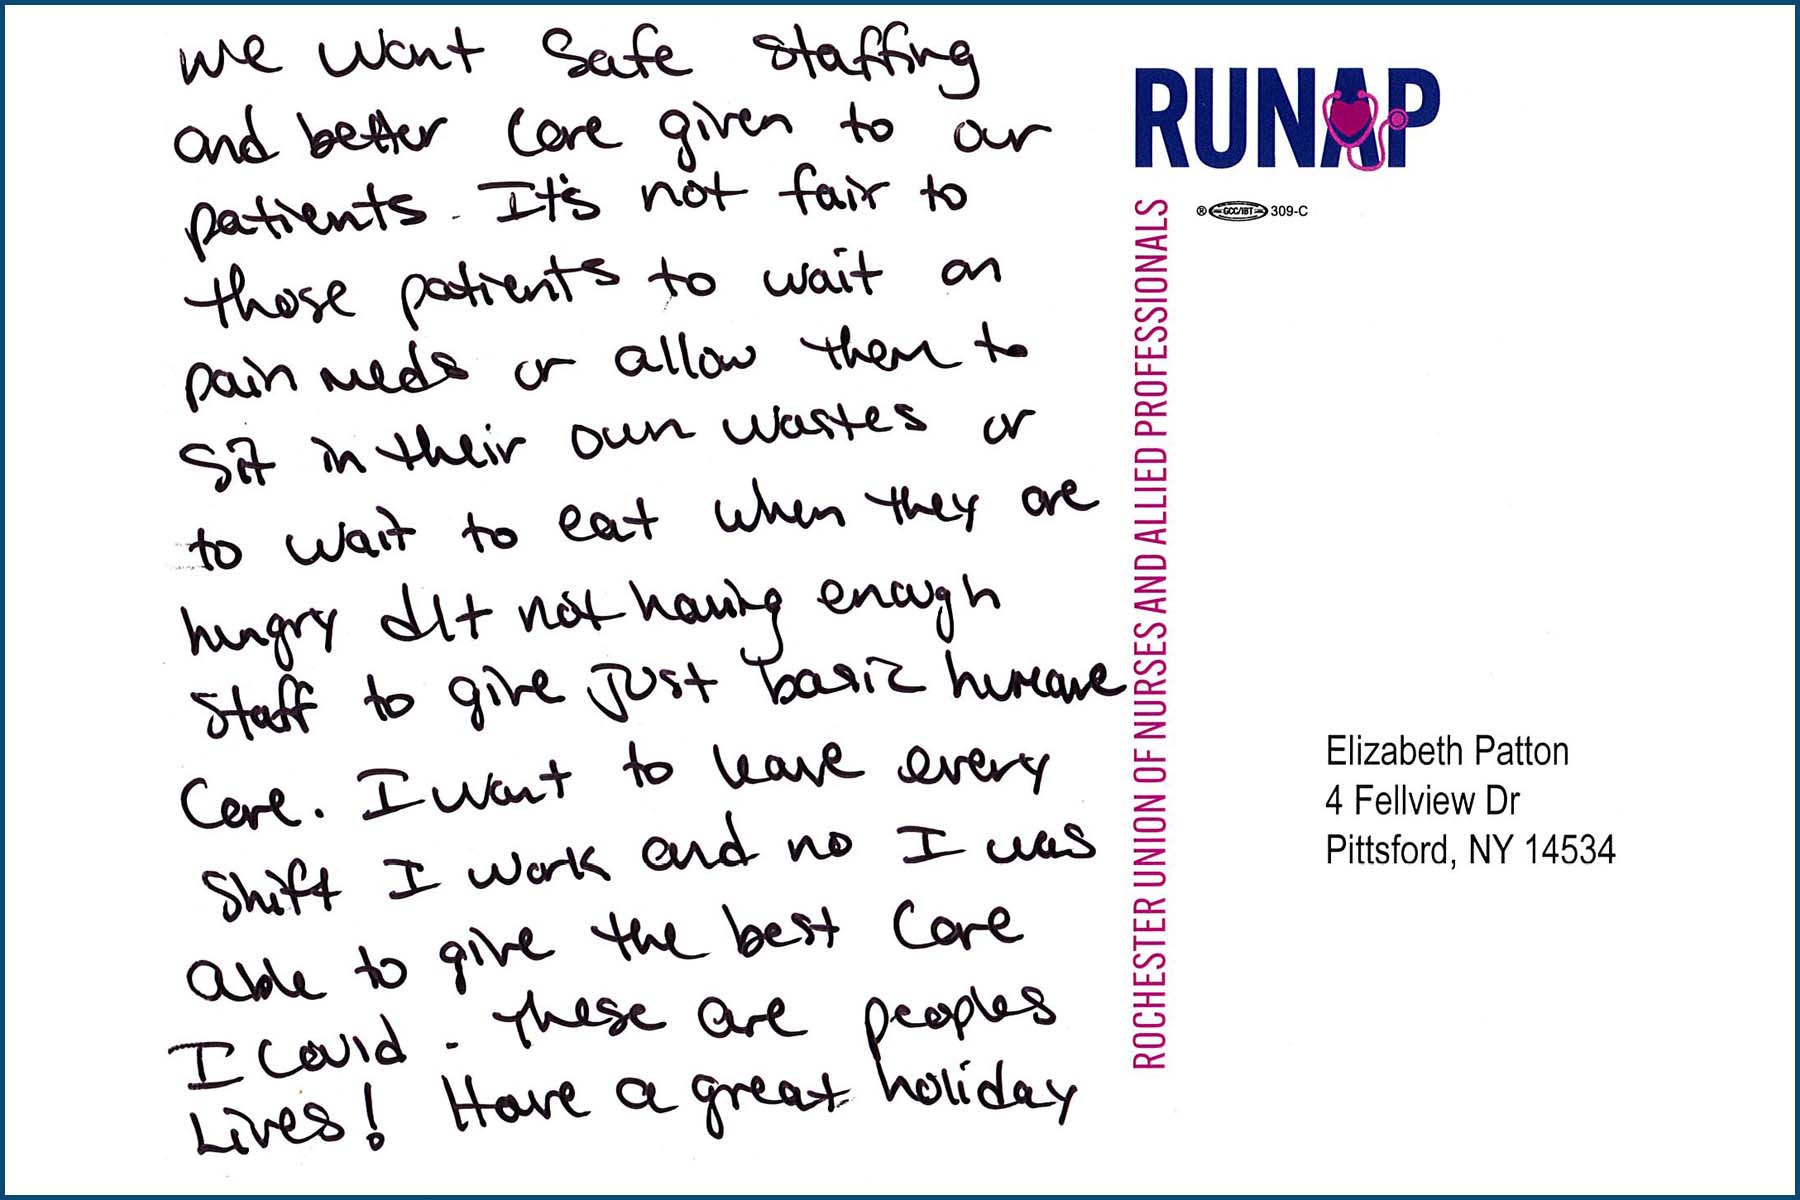 we want Safe Staffing
and better Care given to our
patients. It's not fair to
those patients to wait on
pain meds or allow them to
sit in their own wastes or
to wait to eat when they are
hungry d/t not having enough
Staff to give just basic humane
Care. I want to leave every
Shift I work and no I was
able to give the best Care
I Could. These are peoples
Lives! Have a great holiday
RUNAP
® GCC/IBT 309-C
ROCHESTER UNION OF NURSES AND ALLIED PROFESSIONALS
Elizabeth Patton
4 Fellview Dr
Pittsford, NY 14534